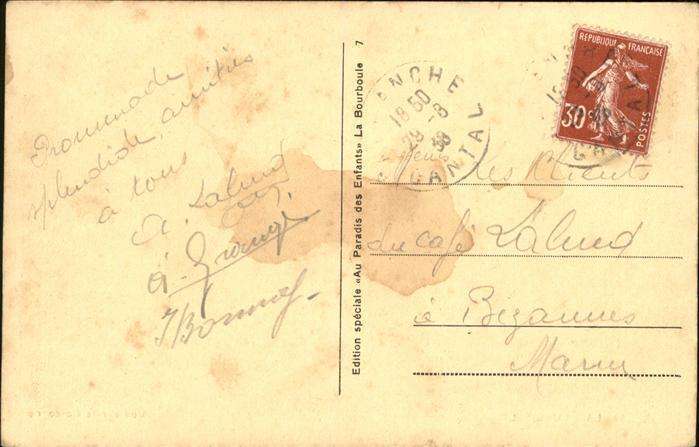 Promenade
splendide, amitiés
à tous
A. Lalund
Edition spéciale «Au Paradis des Enfants» La Bourboule 7
ANCHE
18 50
29 -8
38
CANTAL
REPUBLIQUE FRANÇAISE
30c
POSTES
les clients
du café Lalund
à Bezannes
Marne